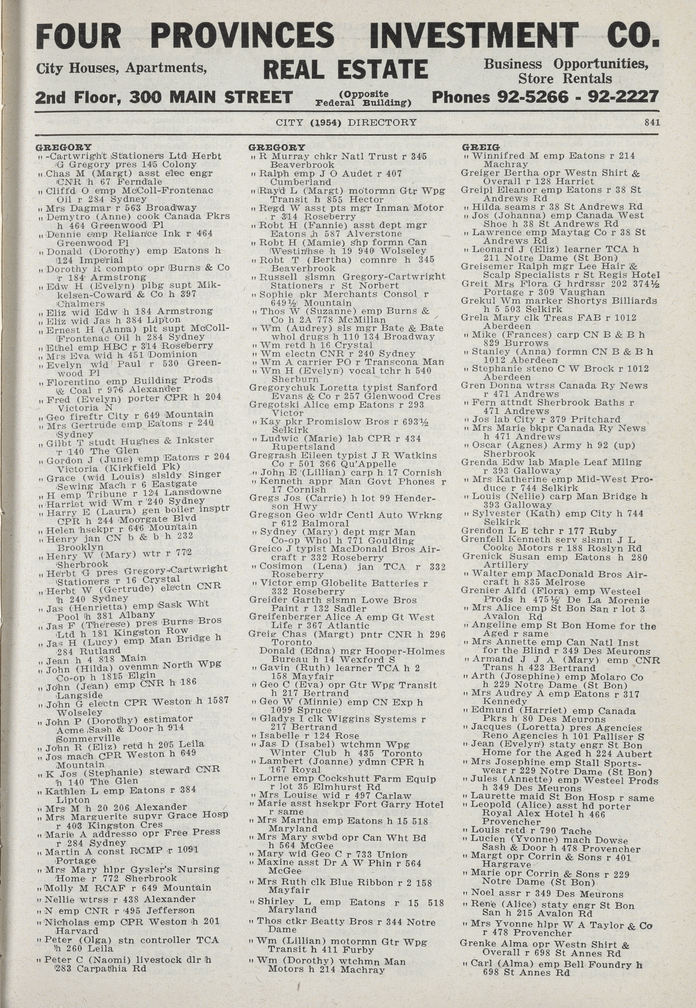 FOUR PROVINCES INVESTMENT CO.
City Houses, Apartments,
REAL ESTATE
Business Opportunities,
Store Rentals
2nd Floor, 300 MAIN STREET
(Opposite
Federal Building)
Phones 92-5266 - 92-2227
CITY (1954) DIRECTORY
841
GREGORY
" -Cartwright Stationers Ltd Herbt
G Gregory pres 145 Colony
" Chas M (Margt) asst elec engr
CNR h 67 Ferndale
" Cliffd O emp McColl-Frontenac
Oil r 284 Sydney
" Mrs Dagmar r 563 Broadway
" Demytro (Anne) cook Canada Pkrs
h 464 Greenwood Pl
" Dennie emp Reliance Ink r 464
Greenwood Pl
" Donald (Dorothy) emp Eatons h
124 Imperial
" Dorothy R compto opr Burns & Co
r 184 Armstrong
" Edw H (Evelyn) plbg supt Mik-
kelsen-Coward & Co h 397
Chalmers
" Eliz wid Edw h 184 Armstrong
" Eliz wid Jas h 384 Lipton
" Ernest H (Anna) plt supt McColl-
Frontenac Oil h 284 Sydney
" Ethel emp HBC r 314 Roseberry
" Mrs Eva wid h 451 Dominion
" Evelyn wid Paul r 530 Green-
wood Pl
" Florentino emp Building Prods
& Coal r 976 Alexander
" Fred (Evelyn) porter CPR h 204
Victoria N
" Geo fireftr City r 649 Mountain
" Mrs Gertrude emp Eatons r 240
Sydney
" Gilbt T studt Hughes & Inkster
r 140 The Glen
" Gordon J (June) emp Eatons r 204
Victoria (Kirkfield Pk)
" Grace (wid Louis) slsldy Singer
Sewing Mach r 6 Eastgate
" H emp Tribune r 124 Lansdowne
" Harriet wid Wm r 240 Sydney
" Harry E (Laura) gen boiler insptr
CPR h 244 Moorgate Blvd
" Helen hsekpr r 646 Mountain
" Henry jan CN b & b h 232
Brooklyn
" Henry W (Mary) wtr r 772
Sherbrook
" Herbt G pres Gregory-Cartwright
Stationers r 16 Crystal
" Herbt W (Gertrude) electn CNR
h 240 Sydney
" Jas (Henrietta) emp Sask Wht
Pool h 381 Albany
" Jas F (Therese) pres Burns Bros
Ltd h 181 Kingston Row
" Jas H (Lucy) emp Man Bridge h
284 Rutland
" Jean h 4 818 Main
" John (Hilda) ovenmn North Wpg
Co-op h 1815 Elgin
" John (Jean) emp CNR h 186
Langside
" John G electn CPR Weston h 1587
Wolseley
" John P (Dorothy) estimator
Acme Sash & Door h 914
Sommerville
" John R (Eliz) retd h 205 Leila
" Jos mach CPR Weston h 649
Mountain
" K Jos (Stephanie) steward CNR
h 140 The Glen
" Kathlen L emp Eatons r 384
Lipton
" Mrs M h 20 206 Alexander
" Mrs Marguerite supvr Grace Hosp
r 403 Kingston Cres
" Marie A addresso opr Free Press
r 284 Sydney
" Martin A const RCMP r 1091
Portage
" Mrs Mary hlpr Gysler's Nursing
Home r 772 Sherbrook
" Molly M RCAF r 649 Mountain
" Nellie wtrss r 438 Alexander
" N emp CNR r 495 Jefferson
" Nicholas emp CPR Weston h 201
Harvard
" Peter (Olga) stn controller TCA
h 260 Leila
" Peter C (Naomi) livestock dlr h
283 Carpathia Rd
GREGORY
" R Murray chkr Natl Trust r 345
Beaverbrook
" Ralph emp J O Audet r 407
Cumberland
" Rayd L (Margt) motormn Gtr Wpg
Transit h 855 Hector
" Regd W asst pts mgr Inman Motor
r 314 Roseberry
" Robt H (Fannie) asst dept mgr
Eatons h 587 Alverstone
" Robt H (Mamie) shp formn Can
Westinhse h 19 940 Wolseley
" Robt T (Bertha) comnre h 345
Beaverbrook
" Russell slsmn Gregory-Cartwright
Stationers r St Norbert
" Sophie pkr Merchants Consol r
649½ Mountain
" Thos W (Suzanne) emp Burns &
Co h 2A 778 McMillan
" Wm (Audrey) sls mgr Bate & Bate
whol drugs h 110 134 Broadway
" Wm retd h 16 Crystal
" Wm electn CNR r 240 Sydney
" Wm A carrier PO r Transcona Man
" Wm H (Evelyn) vocal tchr h 540
Sherburn
Gregorychuk Loretta typist Sanford
Evans & Co r 257 Glenwood Cres
Gregotski Alice emp Eatons r 293
Victor
" Kay pkr Promislow Bros r 693½
Selkirk
" Ludwig (Marie) lab CPR r 434
Rupertsland
Gregrash Eileen typist J R Watkins
Co r 501 366 Qu'Appelle
" John E (Lillian) carp h 17 Cornish
" Kenneth appr Man Govt Phones r
17 Cornish
Gregs Jos (Carrie) h lot 99 Hender-
son Hwy
Gregson Geo wldr Centl Auto Wrkng
r 612 Balmoral
" Sydney (Mary) dept mgr Man
Co-op Whol h 771 Goulding
Greico J typist MacDonald Bros Air-
craft r 332 Roseberry
" Cosimon (Lena) jan TCA r 332
Roseberry
" Victor emp Globelite Batteries r
332 Roseberry
Greider Garth slsmn Lowe Bros
Paint r 132 Sadler
Greifenberger Alice A emp Gt West
Life r 367 Atlantic
Greig Chas (Margt) pntr CNR h 296
Toronto
" Donald (Edna) mgr Hooper-Holmes
Bureau h 14 Wexford S
" Gavin (Ruth) learner TCA h 2
158 Mayfair
" Geo C (Eva) opr Gtr Wpg Transit
h 217 Bertrand
" Geo W (Minnie) emp CN Exp h
1099 Spruce
" Gladys I clk Wiggins Systems r
217 Bertrand
" Isabelle r 124 Rose
" Jas D (Isabel) wtchmn Wpg
Winter Club h 435 Toronto
" Lambert (Joanne) ydmn CPR h
167 Royal
" Lorne emp Cockshutt Farm Equip
r lot 35 Elmhurst Rd
" Mrs Louise wid r 497 Carlaw
" Marie asst hsekpr Fort Garry Hotel
r same
" Mrs Martha emp Eatons h 15 518
Maryland
" Mrs Mary swbd opr Can Wht Bd
h 564 McGee
" Mary wid Geo C r 733 Union
" Maxine asst Dr A W Phin r 564
McGee
" Mrs Ruth clk Blue Ribbon r 2 158
Mayfair
" Shirley L emp Eatons r 15 518
Maryland
" Thos ctkr Beatty Bros r 344 Notre
Dame
" Wm (Lillian) motormn Gtr Wpg
Transit h 411 Furby
" Wm (Dorothy) wtchmn Man
Motors h 214 Machray
GREIG
" Winnifred M emp Eatons r 214
Machray
Greiger Bertha opr Westn Shirt &
Overall r 128 Harriet
Greipl Eleanor emp Eatons r 38 St
Andrews Rd
" Hilda seams r 38 St Andrews Rd
" Jos (Johanna) emp Canada West
Shoe h 38 St Andrews Rd
" Lawrence emp Maytag Co r 38 St
Andrews Rd
" Leonard J (Eliz) learner TCA h
211 Notre Dame (St Bon)
Greisemer Ralph mgr Lee Hair &
Scalp Specialists r St Regis Hotel
Greit Mrs Flora G hrdrssr 202 374½
Portage r 309 Vaughan
Grekul Wm marker Shortys Billiards
h 5 503 Selkirk
Grela Mary clk Treas FAB r 1012
Aberdeen
" Mike (Frances) carp CN B & B h
829 Burrows
" Stanley (Anna) formn CN B & B h
1012 Aberdeen
" Stephanie steno C W Brock r 1012
Aberdeen
Gren Donna wtrss Canada Ry News
r 471 Andrews
" Fern attndt Sherbrook Baths r
471 Andrews
" Jos lab City r 379 Pritchard
" Mrs Marie bkpr Canada Ry News
h 471 Andrews
" Oscar (Agnes) Army h 92 (up)
Sherbrook
Grenda Edw lab Maple Leaf Mllng
r 393 Galloway
" Mrs Katherine emp Mid-West Pro-
duce r 744 Selkirk
" Louis (Nellie) carp Man Bridge h
393 Galloway
" Sylvester (Kath) emp City h 744
Selkirk
Grendon L E tchr r 177 Ruby
Grenfell Kenneth serv slsmn J L
Cooke Motors r 188 Roslyn Rd
Grenick Susan emp Eatons h 280
Artillery
" Walter emp MacDonald Bros Air-
craft h 835 Melrose
Grenier Alfd (Flora) emp Westeel
Prods h 475½ De La Morenie
" Mrs Alice emp St Bon San r lot 3
Avalon Rd
" Angeline emp St Bon Home for the
Aged r same
" Mrs Annette emp Can Natl Inst
for the Blind r 349 Des Meurons
" Armand J J A (Mary) emp CNR
Trans h 423 Bertrand
" Arth (Josephine) emp Molaro Co
h 229 Notre Dame (St Bon)
" Mrs Audrey A emp Eatons r 317
Kennedy
" Edmund (Harriet) emp Canada
Pkrs h 80 Des Meurons
" Jacques (Loretta) pres Agencies
Reno Agencies h 101 Palliser S
" Jean (Evelyn) staty engr St Bon
Home for the Aged h 224 Aubert
" Mrs Josephine emp Stall Sports-
wear r 229 Notre Dame (St Bon)
" Jules (Annette) emp Westeel Prods
h 349 Des Meurons
" Laurette maid St Bon Hosp r same
" Leopold (Alice) asst hd porter
Royal Alex Hotel h 466
Provencher
" Louis retd r 790 Tache
" Lucien (Yvonne) mach Dowse
Sash & Door h 478 Provencher
" Margt opr Corrin & Sons r 401
Hargrave
" Marie opr Corrin & Sons r 229
Notre Dame (St Bon)
" Noel assr r 349 Des Meurons
" Rene (Alice) staty engr St Bon
San h 215 Avalon Rd
" Mrs Yvonne hlpr W A Taylor & Co
r 478 Provencher
Grenke Alma opr Westn Shirt &
Overall r 698 St Annes Rd
" Carl (Alma) emp Bell Foundry h
698 St Annes Rd